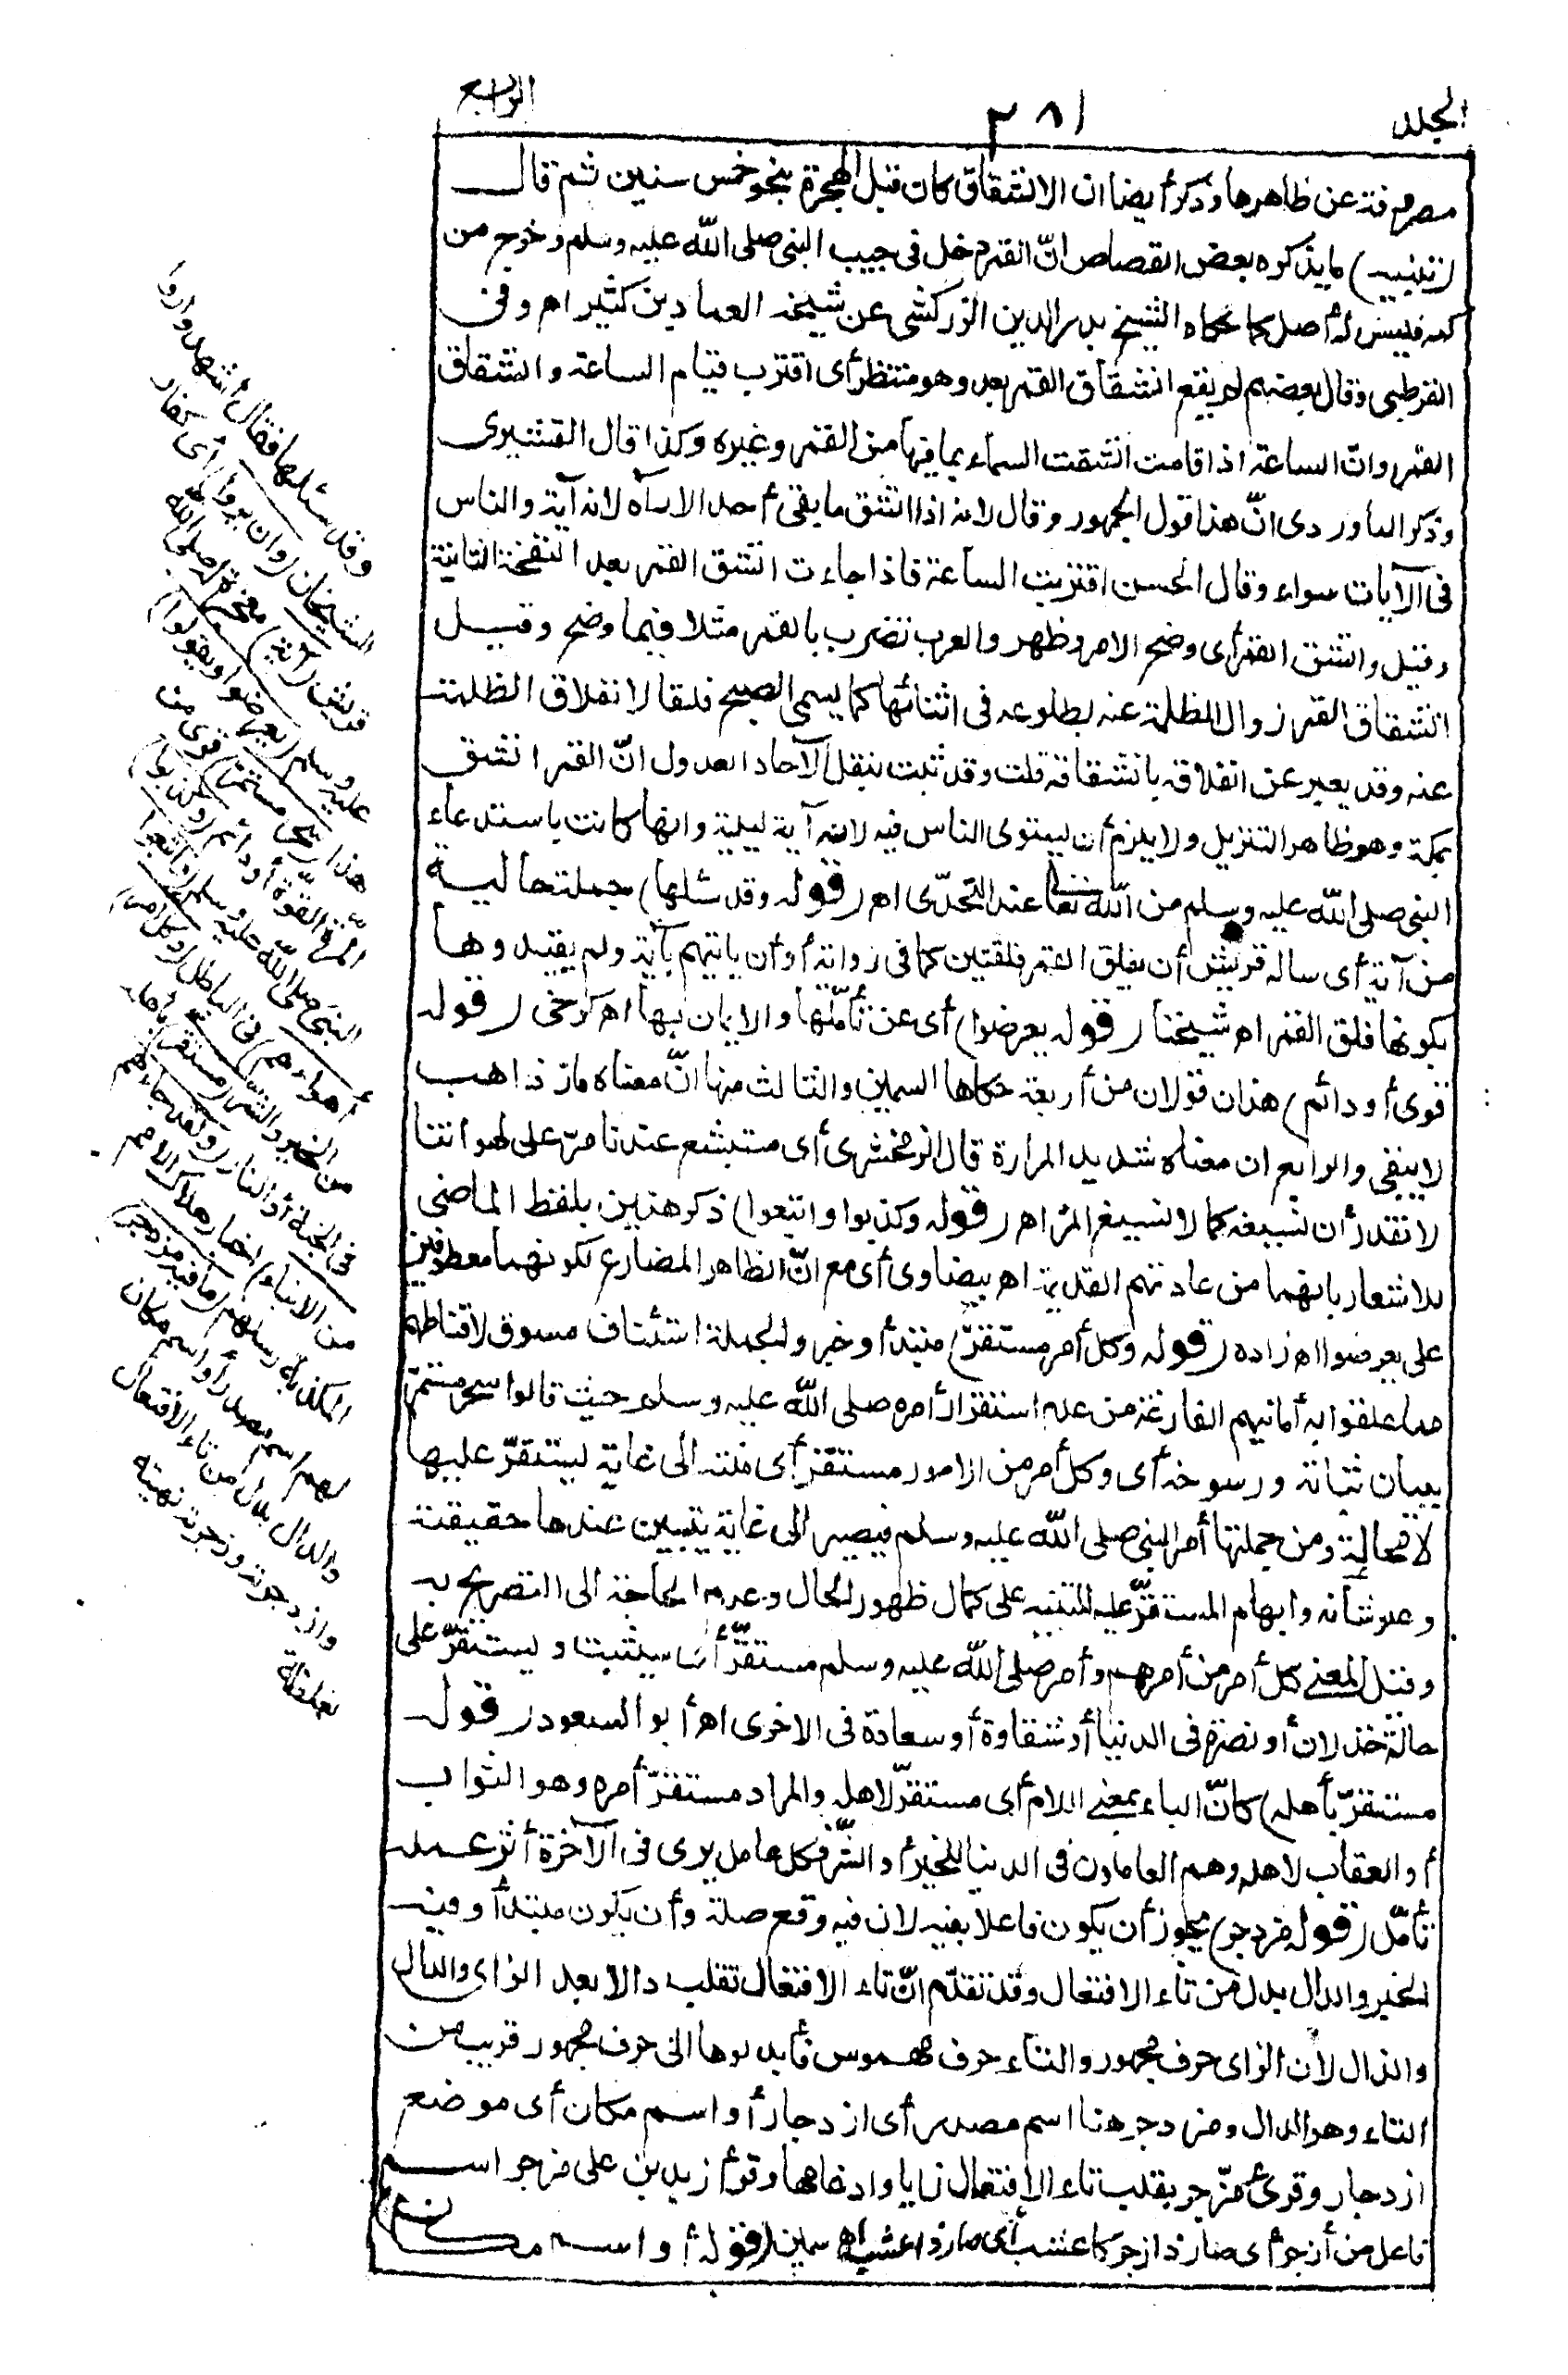 الجلد
٢٨١
الرابع
مصروفة عن ظاهرها وذكر أيضا ان الانشقاق كان قبل الهجرة بنحو خمس سنين ثم قال
(تنبيه) ما يذكره بعض القصاص انّ القمر دخل فى جيب النبى صلى الله عليه وسلم وخرج من
كمه فليس له أصل كما حكاه الشيخ بدر الدين الزركشى عن شيخه العماد بن كثير اه وفى
القرطبى وقال بعضهم لم يقع انشقاق القمر بعد وهو منتظر أى اقترب قيام الساعة وانشقاق
القمر وانّ الساعة اذا قامت انشقت السماء بما فيها من القمر وغيره وكذا قال القشيرى
وذكر الماوردى انّ هذا قول الجمهور وقال لانه اذا انشق ما بقى أحد الا رآه لانه آية والناس
فى الآيات سواء وقال الحسن اقتربت الساعة فاذا جاءت انشق القمر بعد النفخة الثانية
وقيل وانشق القمر أى وضح الامر وظهر والعرب تضرب بالقمر مثلا فيما وضح وقيل
انشقاق القمر زوال الظلمة عنه بطلوعه فى اثنائها كما يسمى الصبح فلقا لانفلاق الظلمة
عنه وقد يعبر عن انفلاقه بانشقاقه قلت وقد ثبت بنقل الآحاد العدول انّ القمر انشق
بمكة وهو ظاهر التنزيل ولا يلزم أن يستوى الناس فيه لانه آية ليلية وانها كانت باستدعاء
النبى صلى الله عليه وسلم من الله تعالى عند التحدّى اه (قوله وقد سئلها) جملة حالية
من آية أى سأله قريش أن يفلق القمر فلقتين كما فى رواية أو أن يأتيهم بآية ولم يقيدوها
بكونها فلق القمر اه شيخنا (قوله يعرضوا) أى عن تأمّلها والايمان بها اه كرخى (قوله
قوى أو دائم) هذان قولان من أربعة حكاها السمين والثالث منها انّ معناه مارّ ذاهب
لا يبقى والرابع ان معناه شديد المرارة قال الزمخشرى أى مستبشع عندنا مرّ على لهواتنا
لا نقدر أن نسيغه كما لا نسيغ المرّ اه (قوله وكذبوا واتبعوا) ذكر هذين بلفظ الماضى
للاشعار بانهما من عادتهم القديمة اه بيضاوى أى مع انّ الظاهر المضارع لكونهما معطوفين
على يعرضوا اه زاده (قوله وكل أمر مستقرّ) مبتدأ وخبر والجملة استئناف مسوق لاقناطهم
مما علقوا به أمانيهم الفارغة من عدم استقرار أمره صلى الله عليه وسلم حيث قالوا سحر مستمرّ
ببيان ثباته ورسوخه أى وكل أمر من الامور مستقرّ أى منته الى غاية ليستقرّ عليها
لا محالة ومن جملتها أمر النبى صلى الله عليه وسلم فيصير الى غاية يتبين عندها حقيقته
وعلو شأنه وابهام المستقرّ عليه للتنبيه على كمال ظهور الحال وعدم الحاجة الى التصريح به
وقيل المعنى كل أمر من أمرهم وأمره صلى الله عليه وسلم مستقرّ أى سيثبت ويستقرّ على
حالة خذلان أو نصرة فى الدنيا أو شقاوة أو سعادة فى الاخرى اه أبو السعود (قوله
مستقرّ بأهله) كانّ الباء بمعنى اللام أى مستقرّ لاهله والمراد مستقرّ أمره وهو الثواب
أو العقاب لاهله وهم العاملون فى الدنيا للخير أو الشرّ فكل عامل يرى فى الآخرة أثر عمله
تأمّل (قوله مزدجر) يجوز أن يكون فاعلا بفيه لان فيه وقع صلة وأن يكون مبتدأ وفيه
الخبر والدال بدل من تاء الافتعال وقد تقدّم انّ تاء الافتعال تقلب دالا بعد الزاى والدال
والذال لان الزاى حرف مجهور والتاء حرف مهموس فأبدلوها الى حرف مجهور قريب من
التاء وهو الدال ومزدجر هنا اسم مصدر أى ازدجار أو اسم مكان أى موضع
ازدجار وقرئ مزّجر بقلب تاء الافتعال زايا وادغامها وقرأ زيد بن على مزجر اسم
فاعل من أزجر أى صار ذا زجر كاعشب أى صار ذا عشب اه سمين (قوله أو اسم مكان)
وقد سئلها فقال اشهدوا رواه
الشيخان (وان يروا) أى كفار
قريش (آية) معجزة له صلى الله
عليه وسلم (يعرضوا ويقولوا)
هذا (سحر مستمرّ) قوى من
المرّة القوّة أو دائم (وكذبوا)
النبى صلى الله عليه وسلم (واتبعوا
أهواءهم) فى الباطل (وكل أمر)
من الخير والشرّ (مستقرّ) بأهله
فى الجنة أو النار (ولقد جاءهم
من الانباء) اخبار هلاك الامم
المكذبة رسلهم (ما فيه مزدجر)
لهم اسم مصدر أو اسم مكان
والدال بدل من تاء الافتعال
وازدجرته وزجرته نهيته
بغلظة